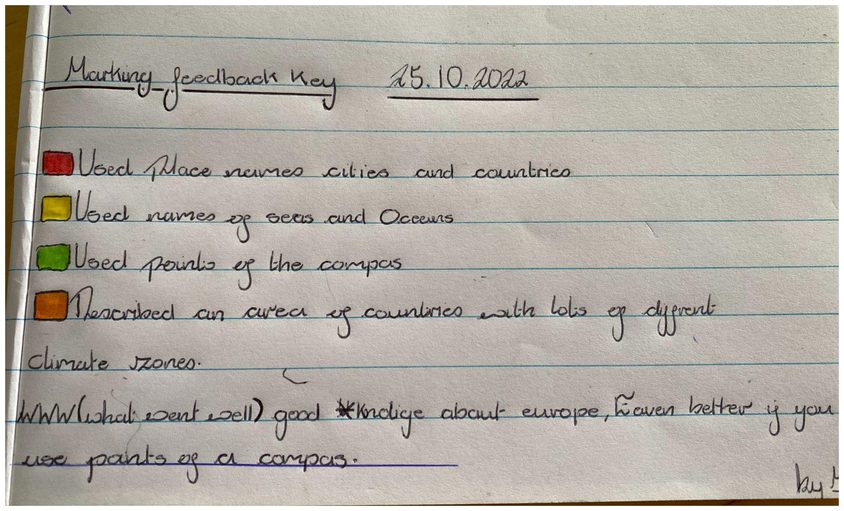 Marking feedback key 25.10.2022
Used place names cities and countries
Used names of seas and Oceans
Used points of the compas
Described an area of countries with lots of dyfrent
climate zones.
WWW (what went well) good Knolige about europe, Eaven better if you
use points of a compas.
by